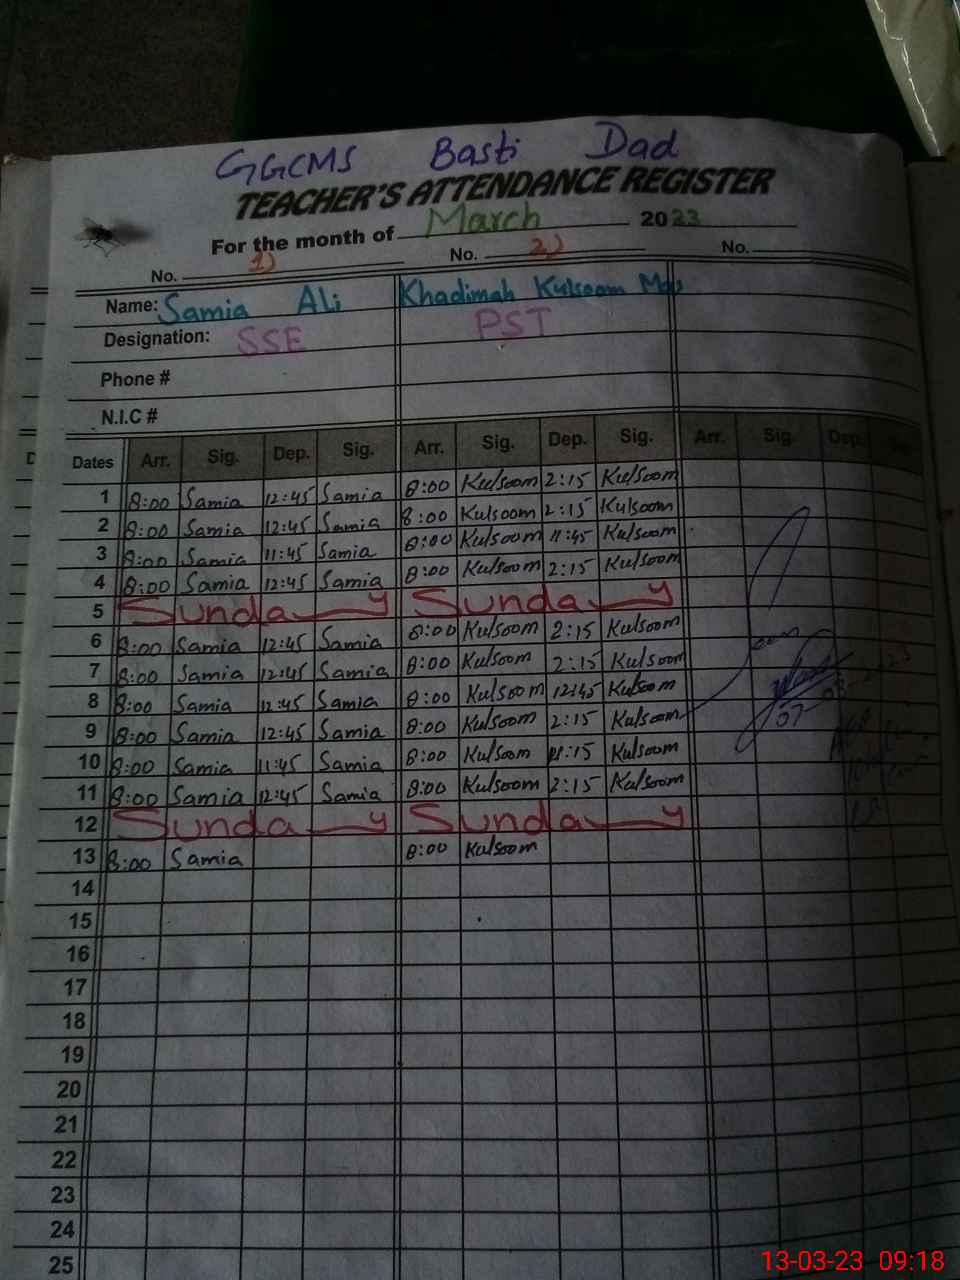 GGCMS Basti Dad
TEACHER'S ATTENDANCE REGISTER
For the month of March 2023
No. 1) No. 2) No.
Name: Samia Ali Khadimah Kulsoom
Designation: SSE PST
Phone #
N.I.C #
Dates Arr. Sig. Dep. Sig. Arr. Sig. Dep. Sig. Arr. Sig. Dep.
1 8:00 Samia 12:45 Samia 8:00 Kulsoom 2:15 Kulsoom
2 8:00 Samia 12:45 Samia 8:00 Kulsoom 2:15 Kulsoom
3 8:00 Samia 11:45 Samia 8:00 Kulsoom 11:45 Kulsoom
4 8:00 Samia 12:45 Samia 8:00 Kulsoom 2:15 Kulsoom
5 Sunday Sunday
6 8:00 Samia 12:45 Samia 8:00 Kulsoom 2:15 Kulsoom
7 8:00 Samia 12:45 Samia 8:00 Kulsoom 2:15 Kulsoom
8 8:00 Samia 12:45 Samia 8:00 Kulsoom 12:45 Kulsoom
9 8:00 Samia 12:45 Samia 8:00 Kulsoom 2:15 Kulsoom
10 8:00 Samia 11:45 Samia 8:00 Kulsoom 11:15 Kulsoom
11 8:00 Samia 12:45 Samia 8:00 Kulsoom 2:15 Kulsoom
12 Sunday Sunday
13 8:00 Samia 8:00 Kulsoom
14
15
16
17
18
19
20
21
22
23
24
25
13-03-23 09:18